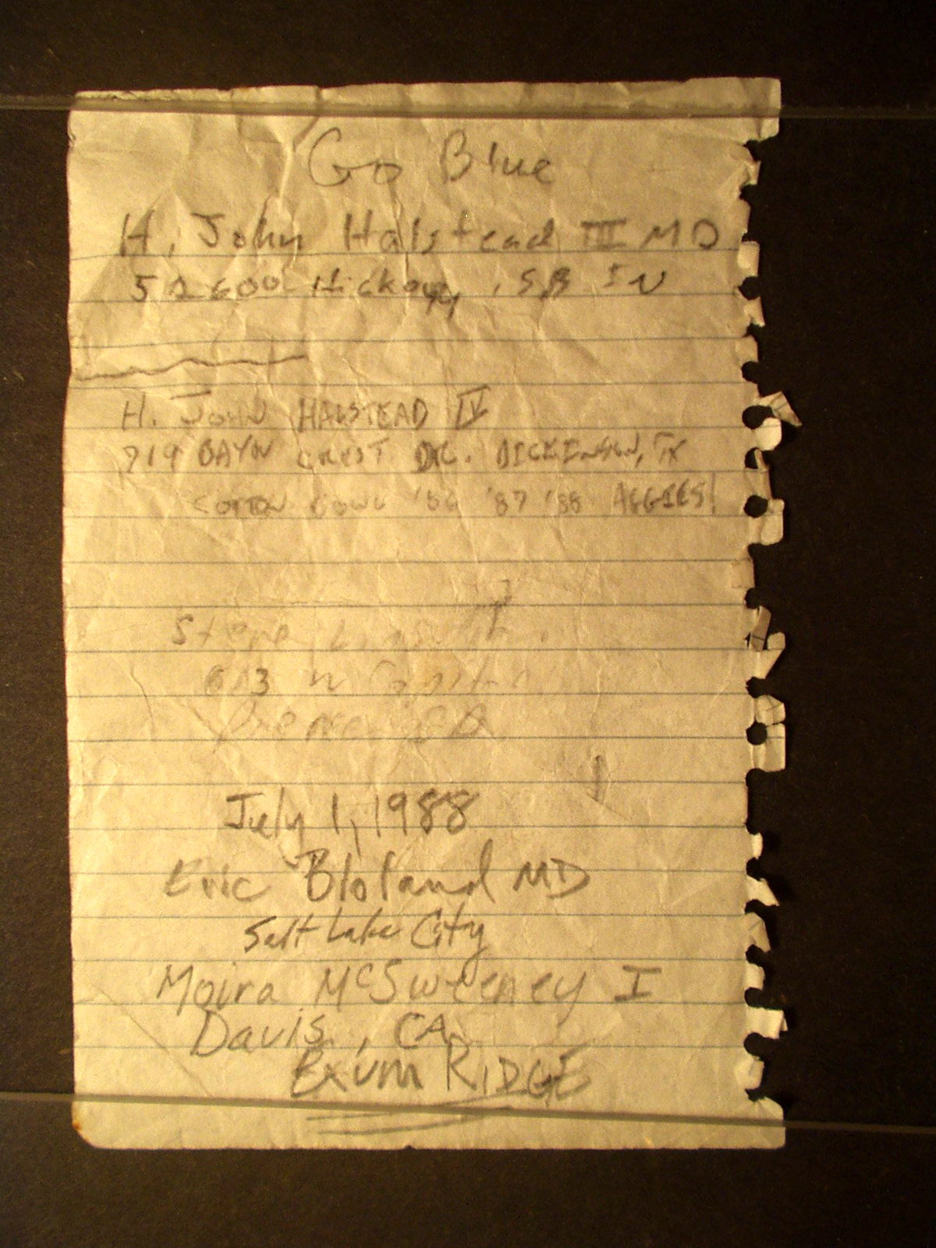 Go Blue
H. John Halstead III MD
Hickory, SB IN
H. JOHN HALSTEAD IV
719 CREST DR. DICKINSON, TX
COTTON BOWL '86 '87 '88 AGGIES!
Steve
613 W
July 1, 1988
Eric Bloland MD
Salt Lake City
Moira McSweeney I
Davis, CA
EXUM RIDGE